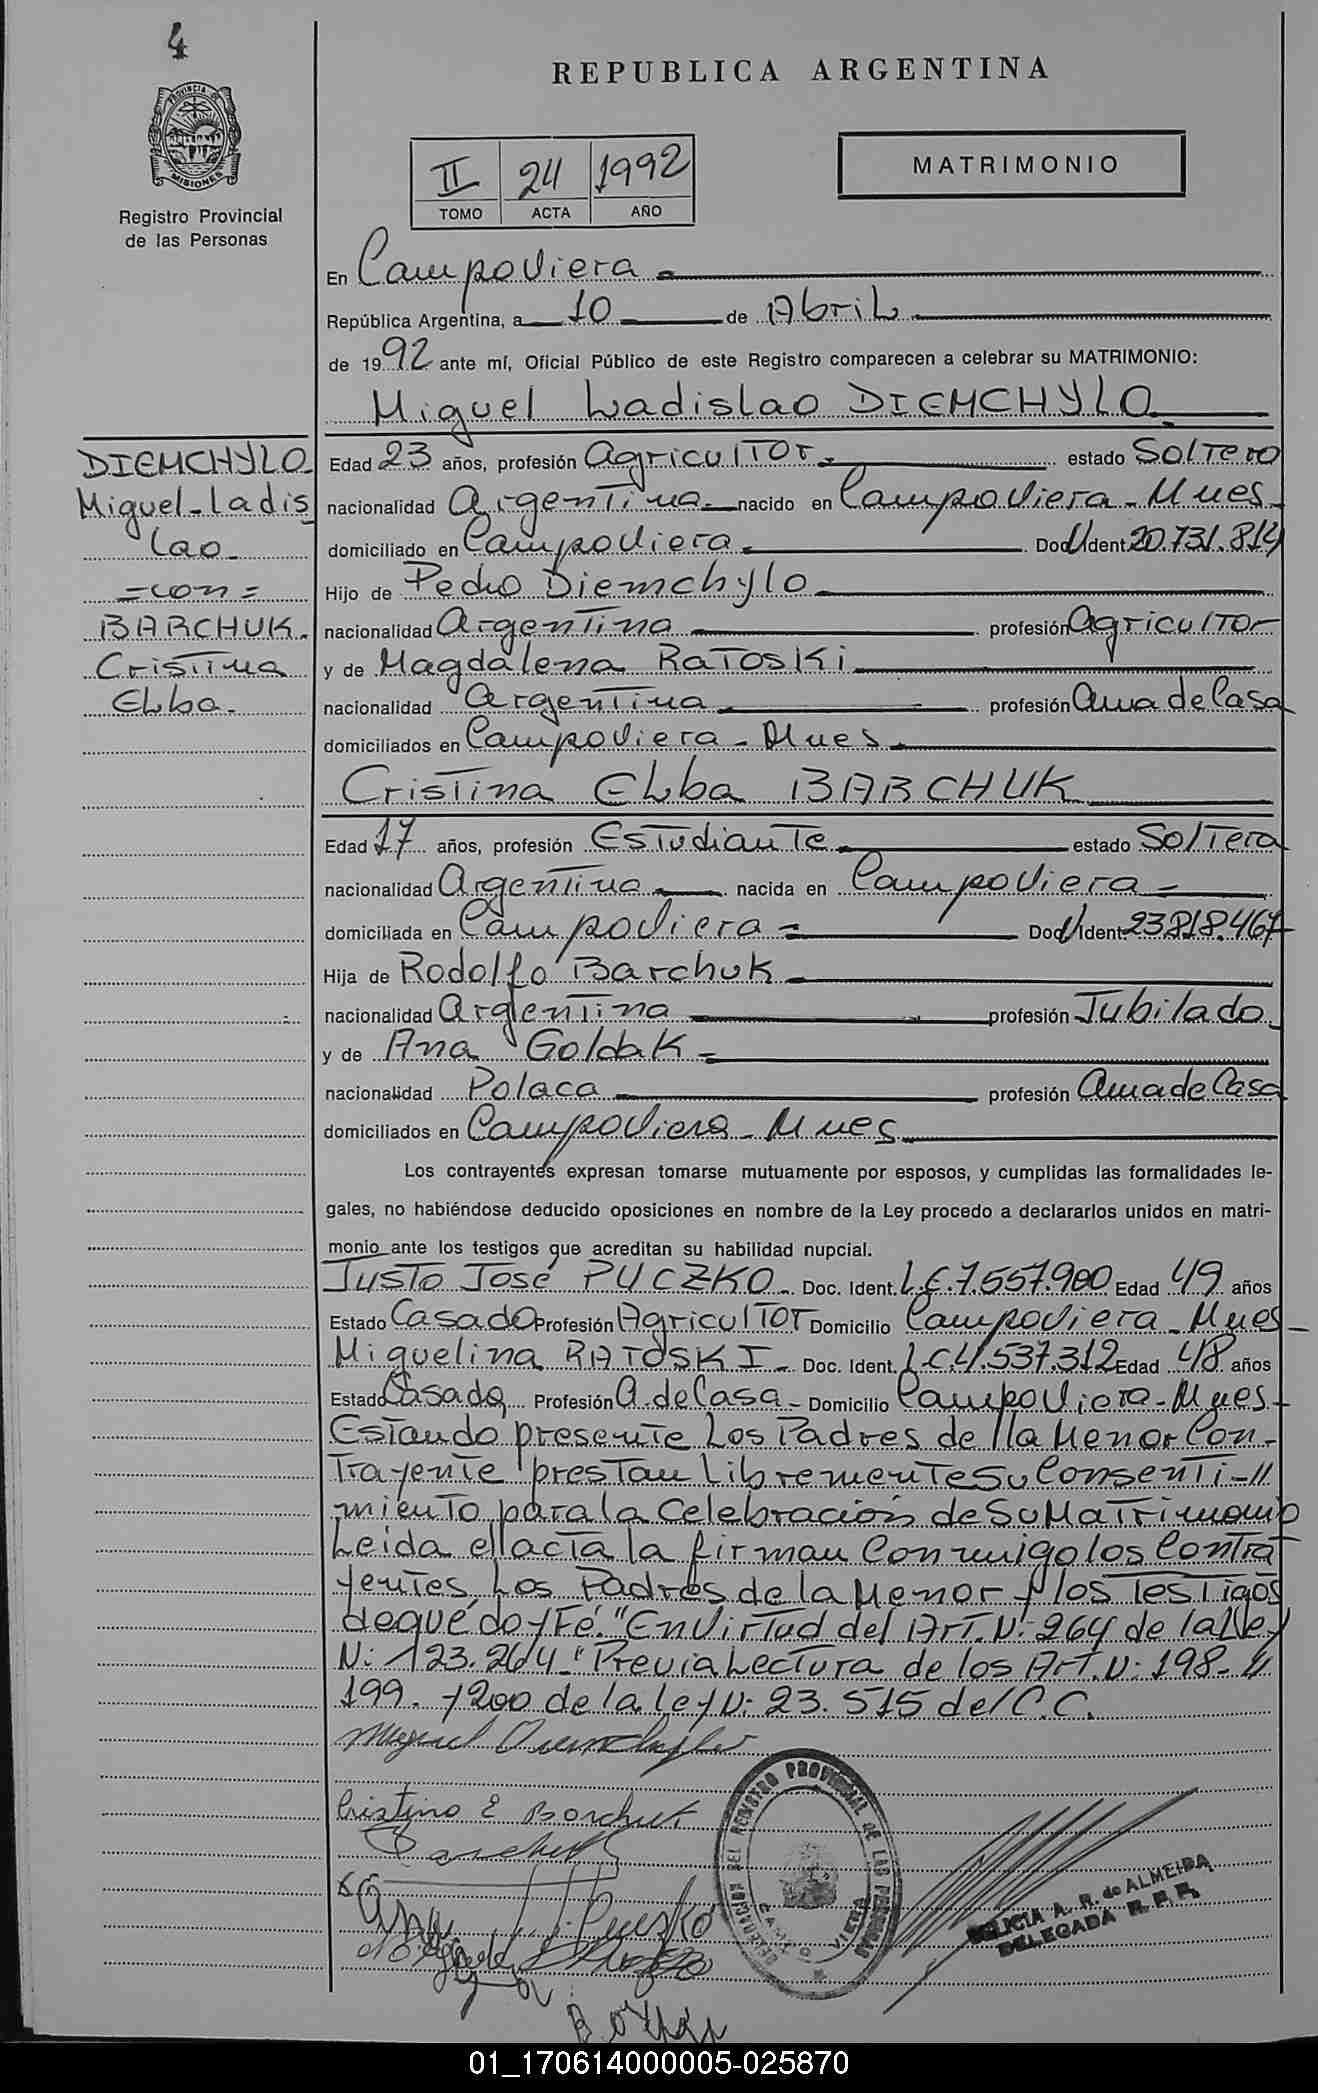 4
REPUBLICA ARGENTINA
PROVINCIA DE
MISIONES
II 24 1992
TOMO ACTA AÑO
MATRIMONIO
Registro Provincial
de las Personas
En Campo Viera
República Argentina, a 10 de Abril
de 1992 ante mí, Oficial Público de este Registro comparecen a celebrar su MATRIMONIO:
Miguel Ladislao DIEMCHYLO
DIEMCHYLO
Miguel-Ladis
lao
=con=
BARCHUK.
Cristina
Elba.
Edad 23 años, profesión Agricultor. estado Soltero
nacionalidad Argentina. nacido en Campo Viera - Mnes -
domiciliado en Campo Viera. Doc/Ident 20.731.814
Hijo de Pedro Diemchylo
nacionalidad Argentina profesión Agricultor
y de Magdalena RaTosKi
nacionalidad Argentina profesión Ama de Casa
domiciliados en Campo Viera - Mnes.
Cristina Elba BARCHUK
Edad 17 años, profesión Estudiante estado Soltera
nacionalidad Argentina nacida en Campo Viera
domiciliada en Campo Viera Doc/Ident 23.818.467
Hija de Rodolfo Barchuk
nacionalidad Argentina profesión Jubilado
y de Ana Goldak
nacionalidad Polaca profesión Ama de Casa
domiciliados en Campo Viera - Mnes
Los contrayentes expresan tomarse mutuamente por esposos, y cumplidas las formalidades le-
gales, no habiéndose deducido oposiciones en nombre de la Ley procedo a declararlos unidos en matri-
monio ante los testigos que acreditan su habilidad nupcial.
Justo José PUCZKO. Doc. Ident. L.E. 7.557.900 Edad 49 años
Estado Casado Profesión Agricultor Domicilio Campo Viera - Mnes -
Miguelina RATOSKI - Doc. Ident. L.C. 4.537.312 Edad 48 años
Estado Casada, Profesión A. de Casa - Domicilio Campo Viera - Mnes -
Estando presente Los Padres de la Menor Con-
Trayente prestan Libremente Su Consenti-//
miento para la Celebración de Su Matrimonio
Leida el acta la firman Conmigo los Contra
yentes, Los Padres de la Menor y los Testigos
de que doy Fé. "En Virtud del Art. N: 264 de la Ley
N: 123.264 - "Previa Lectura de los Art. N: 198 - //
199. y 200 de la ley N: 23.515 del C.C.
Miguel Diemchylo
Cristina E Barchuk
Barchuk
Ana
J. Puczko
DELEGACION DEL REGISTRO PROVINCIAL DE LAS PERSONAS
CAMPO VIERA
DELICIA A. R. de ALMEIDA
DELEGADA R. P. P.
01_170614000005-025870